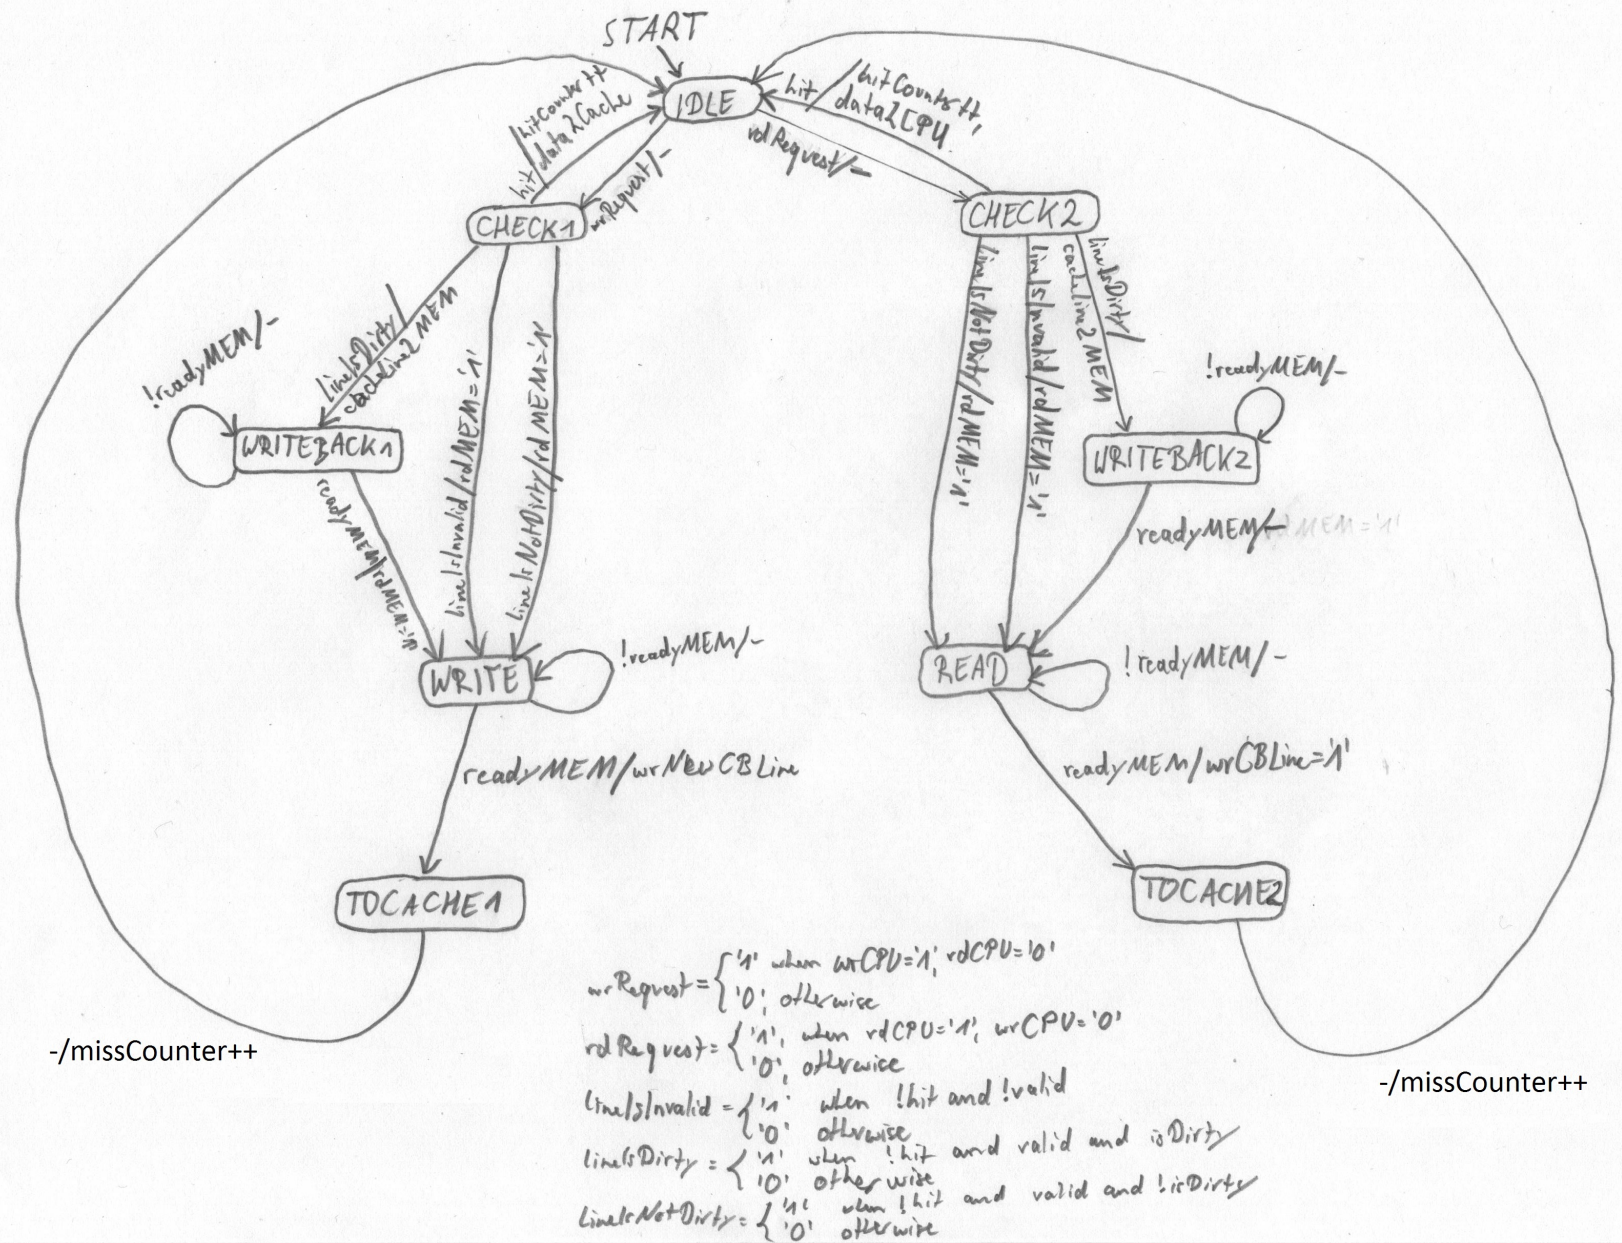 START
IDLE
hit/hitCounter++
data2Cache
wrRequest/-
rdRequest/-
hit/hitCounter++,
data2CPU
CHECK1
CHECK2
lineIsDirty/
cacheline2MEM
lineIsInvalid/rdMEM='1'
lineIsNotDirty/rdMEM='1'
lineIsNotDirty/rdMEM='1'
lineIsInvalid/rdMEM='1'
lineIsDirty/
cacheline2MEM
!readyMEM/-
!readyMEM/-
WRITEBACK1
WRITEBACK2
readyMEM/rdMEM='1'
readyMEM/-
WRITE
!readyMEM/-
READ
!readyMEM/-
readyMEM/wrNewCBLine
readyMEM/wrCBLine='1'
TOCACHE1
TOCACHE2
-/missCounter++
-/missCounter++
wrRequest = { '1' when wrCPU='1', rdCPU='0'
'0', otherwise
rdRequest = { '1', when rdCPU='1', wrCPU='0'
'0', otherwise
lineIsInvalid = { '1' when !hit and !valid
'0' otherwise
lineIsDirty = { '1' when !hit and valid and isDirty
'0' otherwise
lineIsNotDirty = { '1' when !hit and valid and !isDirty
'0' otherwise